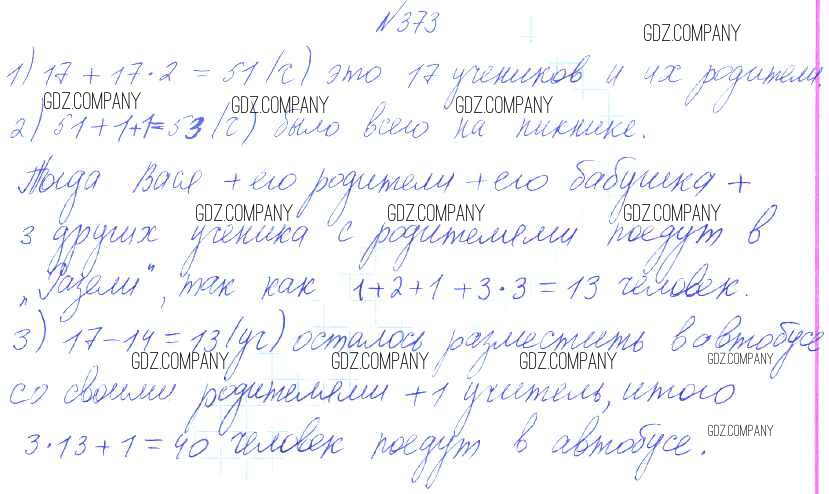 №373
GDZ.COMPANY
1) 17 + 17·2 = 51 (ч) это 17 учеников и их родители.
GDZ.COMPANY GDZ.COMPANY GDZ.COMPANY
2) 51+1+1=53 (ч) было всего на пикнике.
Тогда Вася + его родители + его бабушка +
GDZ.COMPANY GDZ.COMPANY GDZ.COMPANY
3 других ученика с родителями поедут в
„Газели", так как 1+2+1+3·3=13 человек.
3) 17-14=13 (уч) осталось разместить в автобусе
GDZ.COMPANY GDZ.COMPANY GDZ.COMPANY GDZ.COMPANY
со своими родителями +1 учитель, итого
3·13+1=40 человек поедут в автобусе.
GDZ.COMPANY